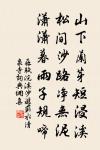 山下蘭芽短浸溪
松間沙路凈無泥
瀟瀟暮雨子規啼
蘇軾浣溪沙遊蘄水清
泉寺詞典撰集